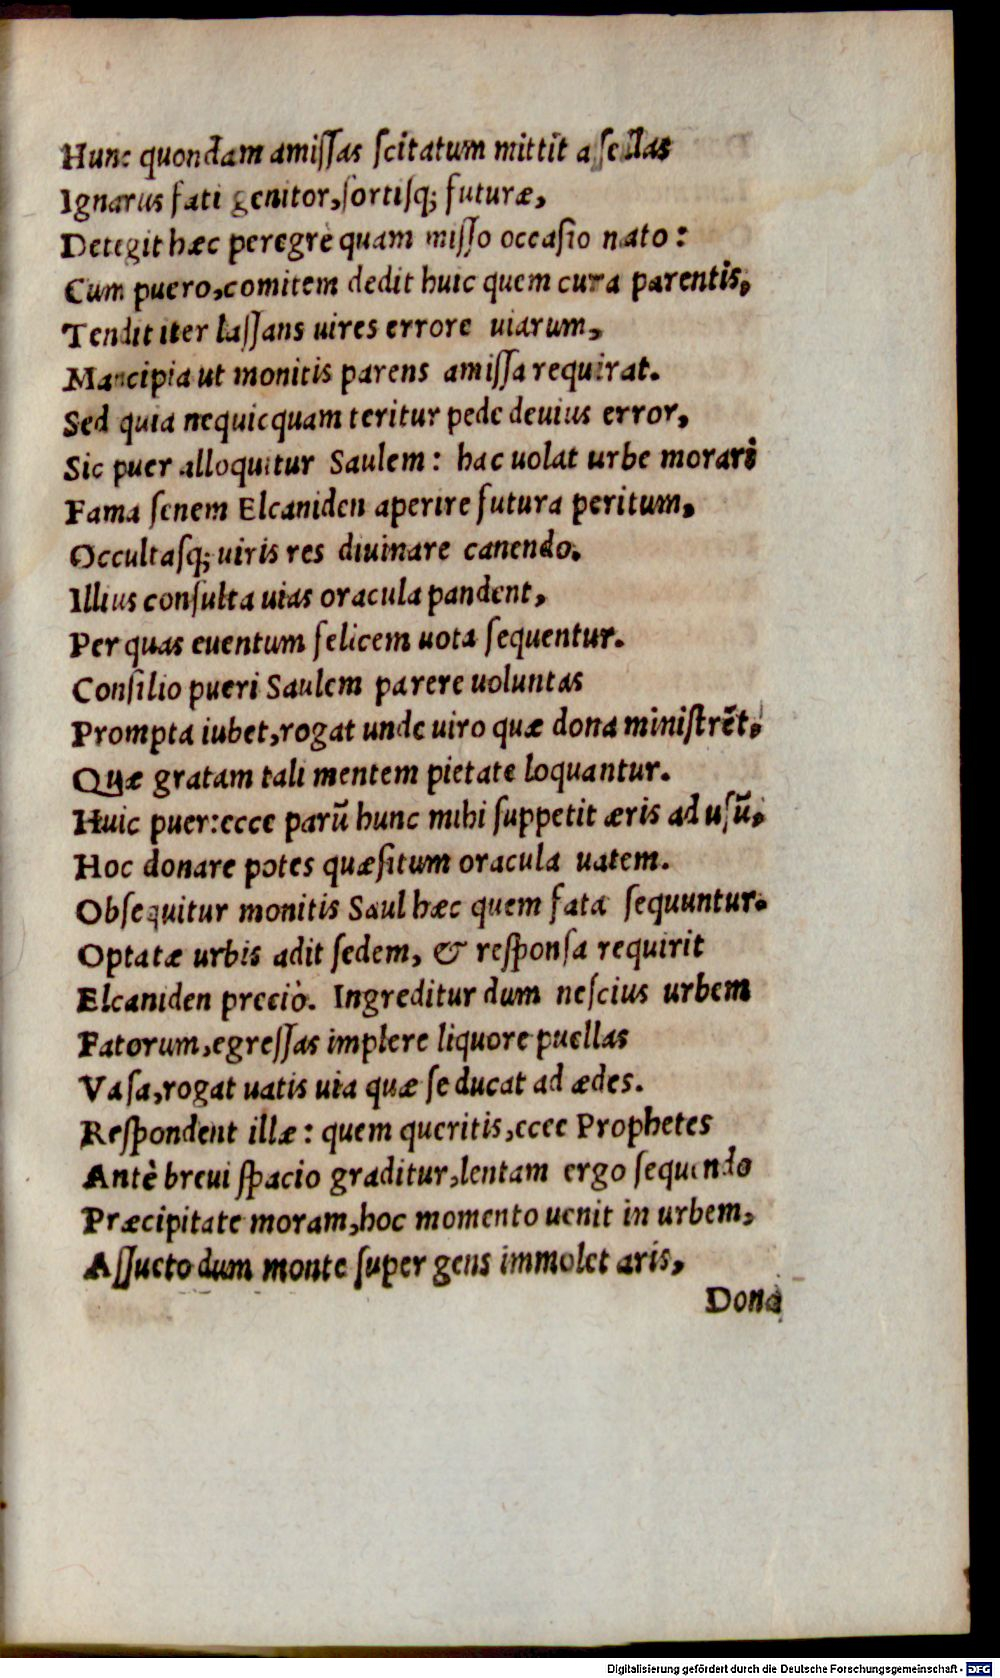 Hunc quondam amiſſas ſcitatum mittit aſellas
Ignarus fati genitor,ſortiſq; futuræ,
Detegit hæc peregrè quam miſſo occaſio nato:
Cum puero,comitem dedit huic quem cura parentis,
Tendit iter laſſans uires errore uiarum,
Mancipia ut monitis parens amiſſa requirat.
Sed quia nequicquam teritur pede deuius error,
Sic puer alloquitur Saulem: hac uolat urbe morari
Fama ſenem Elcaniden aperire futura peritum,
Occultaſq; uiris res diuinare canendo.
Illius conſulta uias oracula pandent,
Per quas euentum felicem uota ſequentur.
Conſilio pueri Saulem parere uoluntas
Prompta iubet,rogat unde uiro quæ dona miniſtrēt,
Quæ gratam tali mentem pietate loquantur.
Huic puer:ecce parū hunc mihi ſuppetit æris ad uſū,
Hoc donare potes quæſitum oracula uatem.
Obſequitur monitis Saul hæc quem fata ſequuntur.
Optatæ urbis adit ſedem, & reſponſa requirit
Elcaniden preciò. Ingreditur dum neſcius urbem
Fatorum,egreſſas implere liquore puellas
Vaſa,rogat uatis uia quæ ſe ducat ad ædes.
Reſpondent illæ: quem queritis,ecce Prophetes
Antè breui ſpacio graditur,lentam ergo ſequendo
Præcipitate moram,hoc momento uenit in urbem,
Aſſueto dum monte ſuper gens immolet aris,
Dona
Digitalisierung gefördert durch die Deutsche Forschungsgemeinschaft - DFG